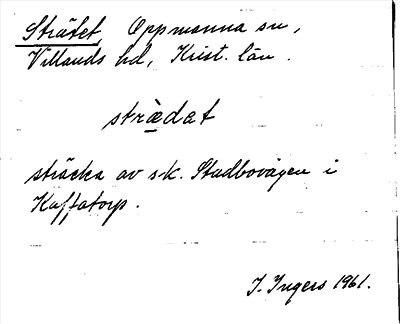 Strätet, Oppmanna sn,
Villands hd, Krist. län.
strä̀dat
sträcka av s.k. Stadbovägen i
Kaffatorp.
I. Ingers 1961.